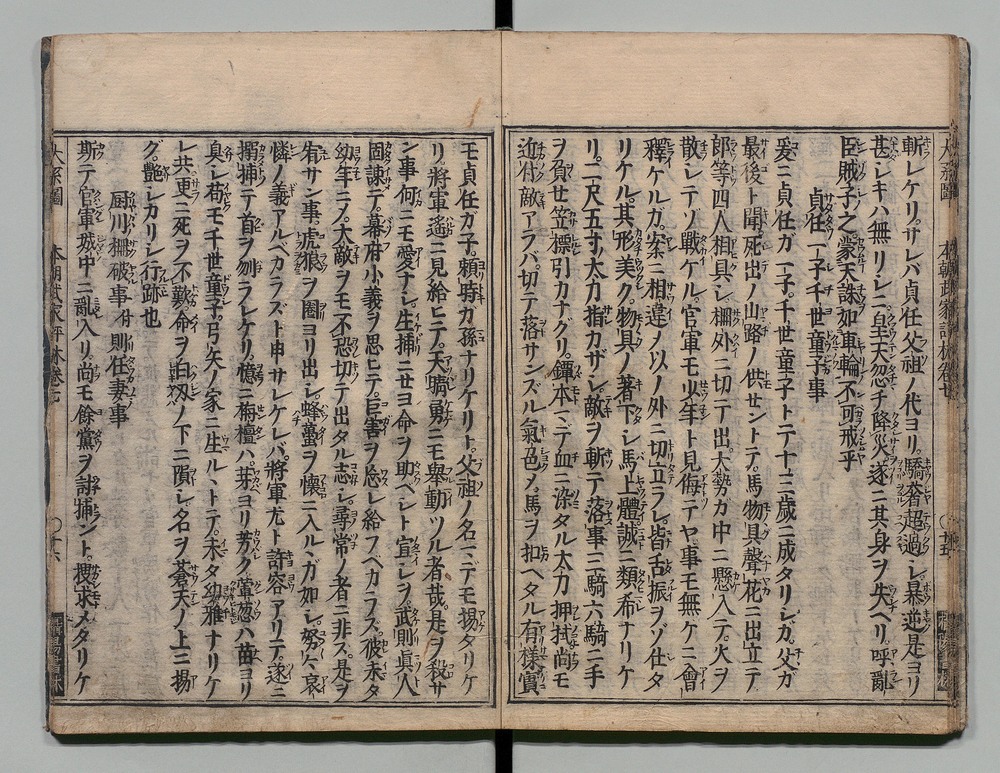 斬レケリ。サレバ貞任父祖ノ代ヨリ。驕奢超過シ。暴逆是ヨリ
甚シキハ無リシニ。皇天忽チ降災遂ニ其身ヲ失ヘリ。呼亂
臣賊子之蒙天誅如車輪不可戒乎
貞任一子千世童子事
爰ニ貞任ガ一子。千世童子トテ十三歳ニ成タリシガ。父ガ
最後ト聞死出ノ山路ノ供サントテ。馬物具聲花ニ出立テ。
郎等四人相具シ。柵外ニ切テ出。大勢ガ中ニ懸入テ。火ヲ
散シテゾ戰ケル。官軍モ少年ト見侮テヤ。事モ無ケニ會
釋ケルガ。案ニ相違メ以ノ外ニ切立ラレ。皆舌振ヲゾ仕タ
リケル。其形美ク。物具ノ著下シ馬上體誠ニ類希ナリケ
リ。二尺五寸ノ太刀指カザシ。敵ヲ斬テ落事三騎六騎ニ手
ヲ負セ。笠標引カナグリ。鐔本ニテ血ニ染タル太刀押拭。尚モ
近付敵アラバ。切テ落サンズル氣色メ。馬ヲ扣ヘタル有樣實
モ貞任ガ子。頼時ガ孫ナリケリト。父祖ノ名ニデモ揚タリケ
リ。將軍遙ニ見給ヒテ。天晴勇ニモ舉動ツル者哉。是ヲ殺サ
ン事何ニモ愛ナシ。生捕ニセヨ命ヲ助ヘシト宣シヲ。武則眞人
固諫テ。幕府小義ヲ思ヒテ。巨害ヲ忘レ給フベカラズ。彼未タ
幼年ニメ。大敵ヲモ不恐切テ出タル志シ。尋常ノ者ニ非ス。是ヲ
宥サン事。虎狼ヲ圈ヨリ出シ。蜂蠆ヲ懷ニ入ル、ガ如シ。努々哀
憐ノ義アルベカラズト申サレケレバ。將軍尤ト許容アリテ。遂ニ
搦捕テ首ヲ刎ラレケリ。憶ニ栴檀ハ。芽ヨリ芳ク葷葱ハ苗ヨリ
臭シ。苟モ千世童子。弓矢ノ家ニ生ル、トテ。未タ幼雅ナリケ
レ共。更ニ死ヲ不歎命ヲ白刄ノ下ニ隕シ名ヲ蒼天ノ上ニ揚
グ。艶シカリシ行跡也
厨川柵破事付則任妻事
斯テ官軍城中ニ亂入リ。尚モ餘黨ヲ討捕ント。搜求メタリケ